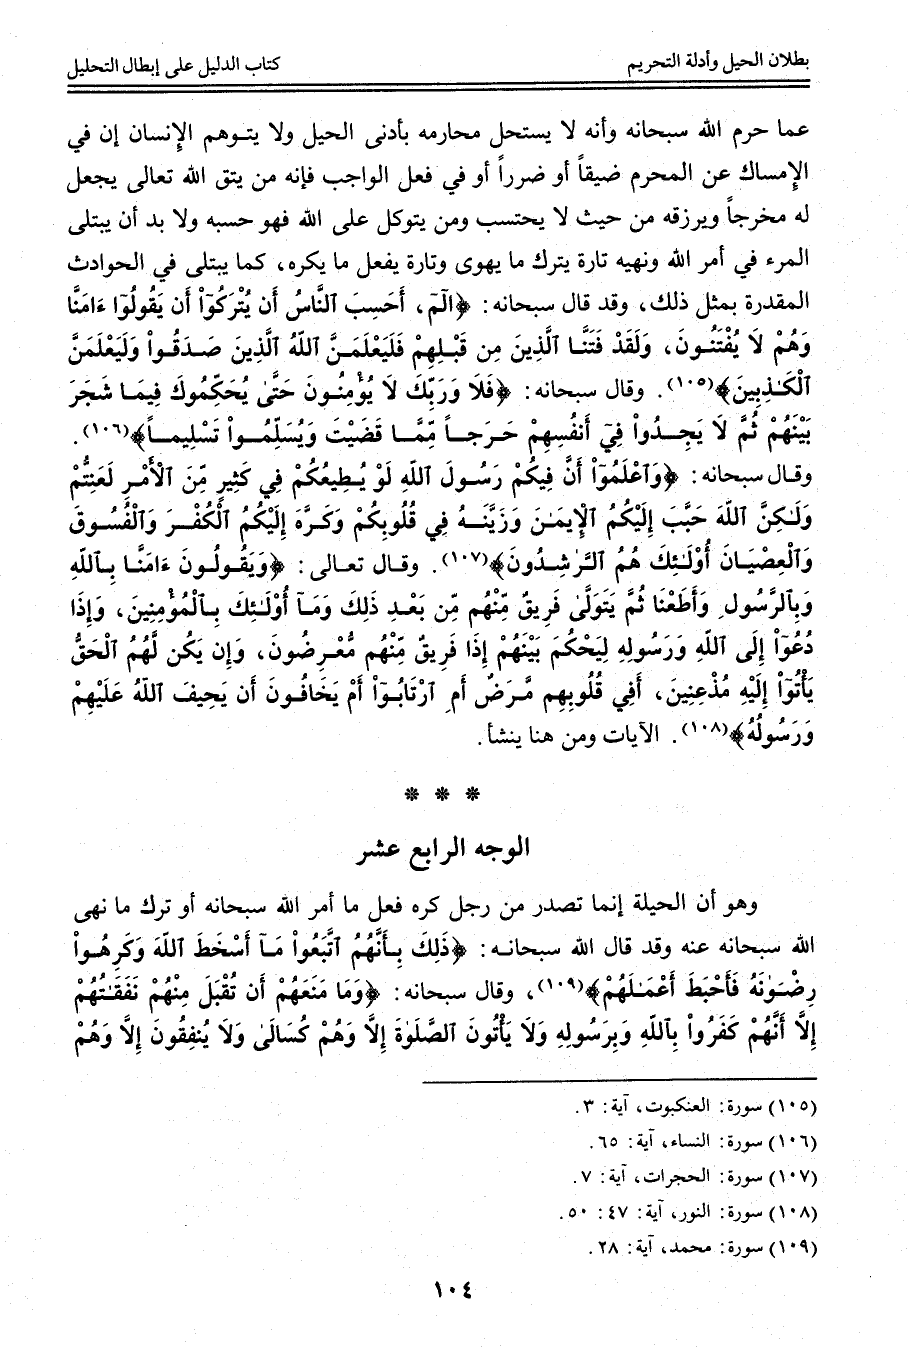 بطلان الحيل وأدلة التحريم
كتاب الدليل على إبطال التحليل
عما حرم الله سبحانه وأنه لا يستحل محارمه بأدنى الحيل ولا يتوهم الإنسان إن في
الإمساك عن المحرم ضيقاً أو ضرراً أو في فعل الواجب فإنه من يتق الله تعالى يجعل
له مخرجاً ويرزقه من حيث لا يحتسب ومن يتوكل على الله فهو حسبه ولا بد أن يبتلى
المرء في أمر الله ونهيه تارة يترك ما يهوى وتارة يفعل ما يكره، كما يبتلى في الحوادث
المقدرة بمثل ذلك، وقد قال سبحانه: ﴿الٓمٓ، أَحَسِبَ ٱلنَّاسُ أَن يُتْرَكُوٓاْ أَن يَقُولُوٓاْ ءَامَنَّا
وَهُمْ لَا يُفْتَنُونَ، وَلَقَدْ فَتَنَّا ٱلَّذِينَ مِن قَبْلِهِمْ فَلَيَعْلَمَنَّ ٱللَّهُ ٱلَّذِينَ صَدَقُواْ وَلَيَعْلَمَنَّ
ٱلْكَٰذِبِينَ﴾(١٠٥). وقال سبحانه: ﴿فَلَا وَرَبِّكَ لَا يُؤْمِنُونَ حَتَّىٰ يُحَكِّمُوكَ فِيمَا شَجَرَ
بَيْنَهُمْ ثُمَّ لَا يَجِدُواْ فِيٓ أَنفُسِهِمْ حَرَجاً مِّمَّا قَضَيْتَ وَيُسَلِّمُواْ تَسْلِيماً﴾(١٠٦).
وقال سبحانه: ﴿وَٱعْلَمُوٓاْ أَنَّ فِيكُمْ رَسُولَ ٱللَّهِ لَوْ يُطِيعُكُمْ فِي كَثِيرٍ مِّنَ ٱلْأَمْرِ لَعَنِتُّمْ
وَلَٰكِنَّ ٱللَّهَ حَبَّبَ إِلَيْكُمُ ٱلْإِيمَٰنَ وَزَيَّنَهُ فِي قُلُوبِكُمْ وَكَرَّهَ إِلَيْكُمُ ٱلْكُفْرَ وَٱلْفُسُوقَ
وَٱلْعِصْيَانَ أُوْلَٰئِكَ هُمُ ٱلرَّٰشِدُونَ﴾(١٠٧). وقال تعالى: ﴿وَيَقُولُونَ ءَامَنَّا بِٱللَّهِ
وَبِٱلرَّسُولِ وَأَطَعْنَا ثُمَّ يَتَوَلَّىٰ فَرِيقٌ مِّنْهُم مِّن بَعْدِ ذَٰلِكَ وَمَآ أُوْلَٰئِكَ بِٱلْمُؤْمِنِينَ، وَإِذَا
دُعُوٓاْ إِلَى ٱللَّهِ وَرَسُولِهِ لِيَحْكُمَ بَيْنَهُمْ إِذَا فَرِيقٌ مِّنْهُم مُّعْرِضُونَ، وَإِن يَكُن لَّهُمُ ٱلْحَقُّ
يَأْتُوٓاْ إِلَيْهِ مُذْعِنِينَ، أَفِي قُلُوبِهِم مَّرَضٌ أَمِ ٱرْتَابُوٓاْ أَمْ يَخَافُونَ أَن يَحِيفَ ٱللَّهُ عَلَيْهِمْ
وَرَسُولُهُ﴾(١٠٨). الآيات ومن هنا ينشأ.
* * *
الوجه الرابع عشر
وهو أن الحيلة إنما تصدر من رجل كره فعل ما أمر الله سبحانه أو ترك ما نهى
الله سبحانه عنه وقد قال الله سبحانه: ﴿ذَٰلِكَ بِأَنَّهُمُ ٱتَّبَعُواْ مَآ أَسْخَطَ ٱللَّهَ وَكَرِهُواْ
رِضْوَٰنَهُ فَأَحْبَطَ أَعْمَٰلَهُمْ﴾(١٠٩)، وقال سبحانه: ﴿وَمَا مَنَعَهُمْ أَن تُقْبَلَ مِنْهُمْ نَفَقَٰتُهُمْ
إِلَّا أَنَّهُمْ كَفَرُواْ بِٱللَّهِ وَبِرَسُولِهِ وَلَا يَأْتُونَ ٱلصَّلَوٰةَ إِلَّا وَهُمْ كُسَالَىٰ وَلَا يُنفِقُونَ إِلَّا وَهُمْ
(١٠٥) سورة: العنكبوت، آية: ٣.
(١٠٦) سورة: النساء، آية: ٦٥.
(١٠٧) سورة: الحجرات، آية: ٧.
(١٠٨) سورة: النور، آية: ٤٧: ٥٠.
(١٠٩) سورة: محمد، آية: ٢٨.
١٠٤